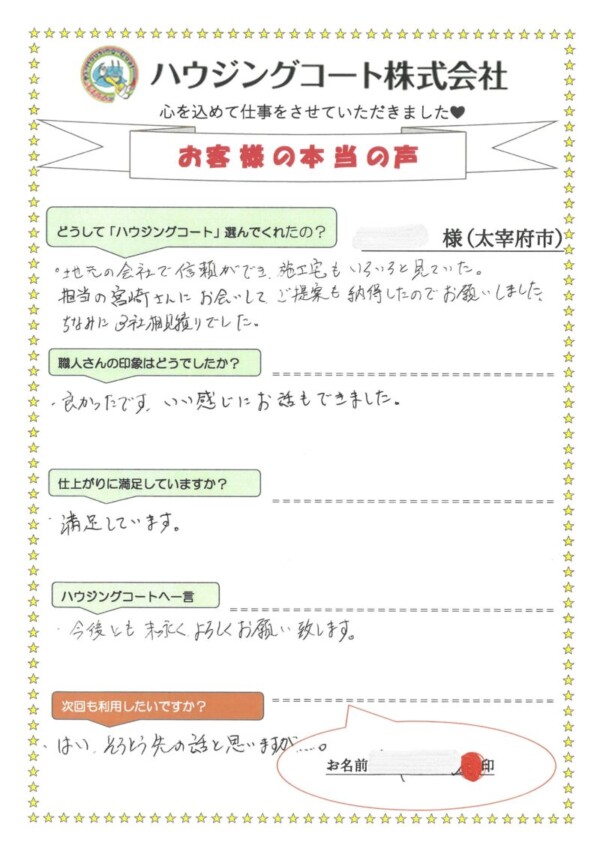 ハウジングコート株式会社
心を込めて仕事をさせていただきました♥
お客様の本当の声
どうして「ハウジングコート」選んでくれたの？
様（太宰府市）
・地元の会社で信頼ができ、施工宅もいろいろと見ていた。
担当の宮崎さんにお会いしてご提案も納得したのでお願いしました、
ちなみに3社相見積りでした。
職人さんの印象はどうでしたか？
・良かったです、いい感じにお話もできました。
仕上がりに満足していますか？
・満足しています。
ハウジングコートへ一言
・今後とも末永くよろしくお願い致します。
次回も利用したいですか？
・はい、そうとう先の話と思いますが.....。
お名前 印